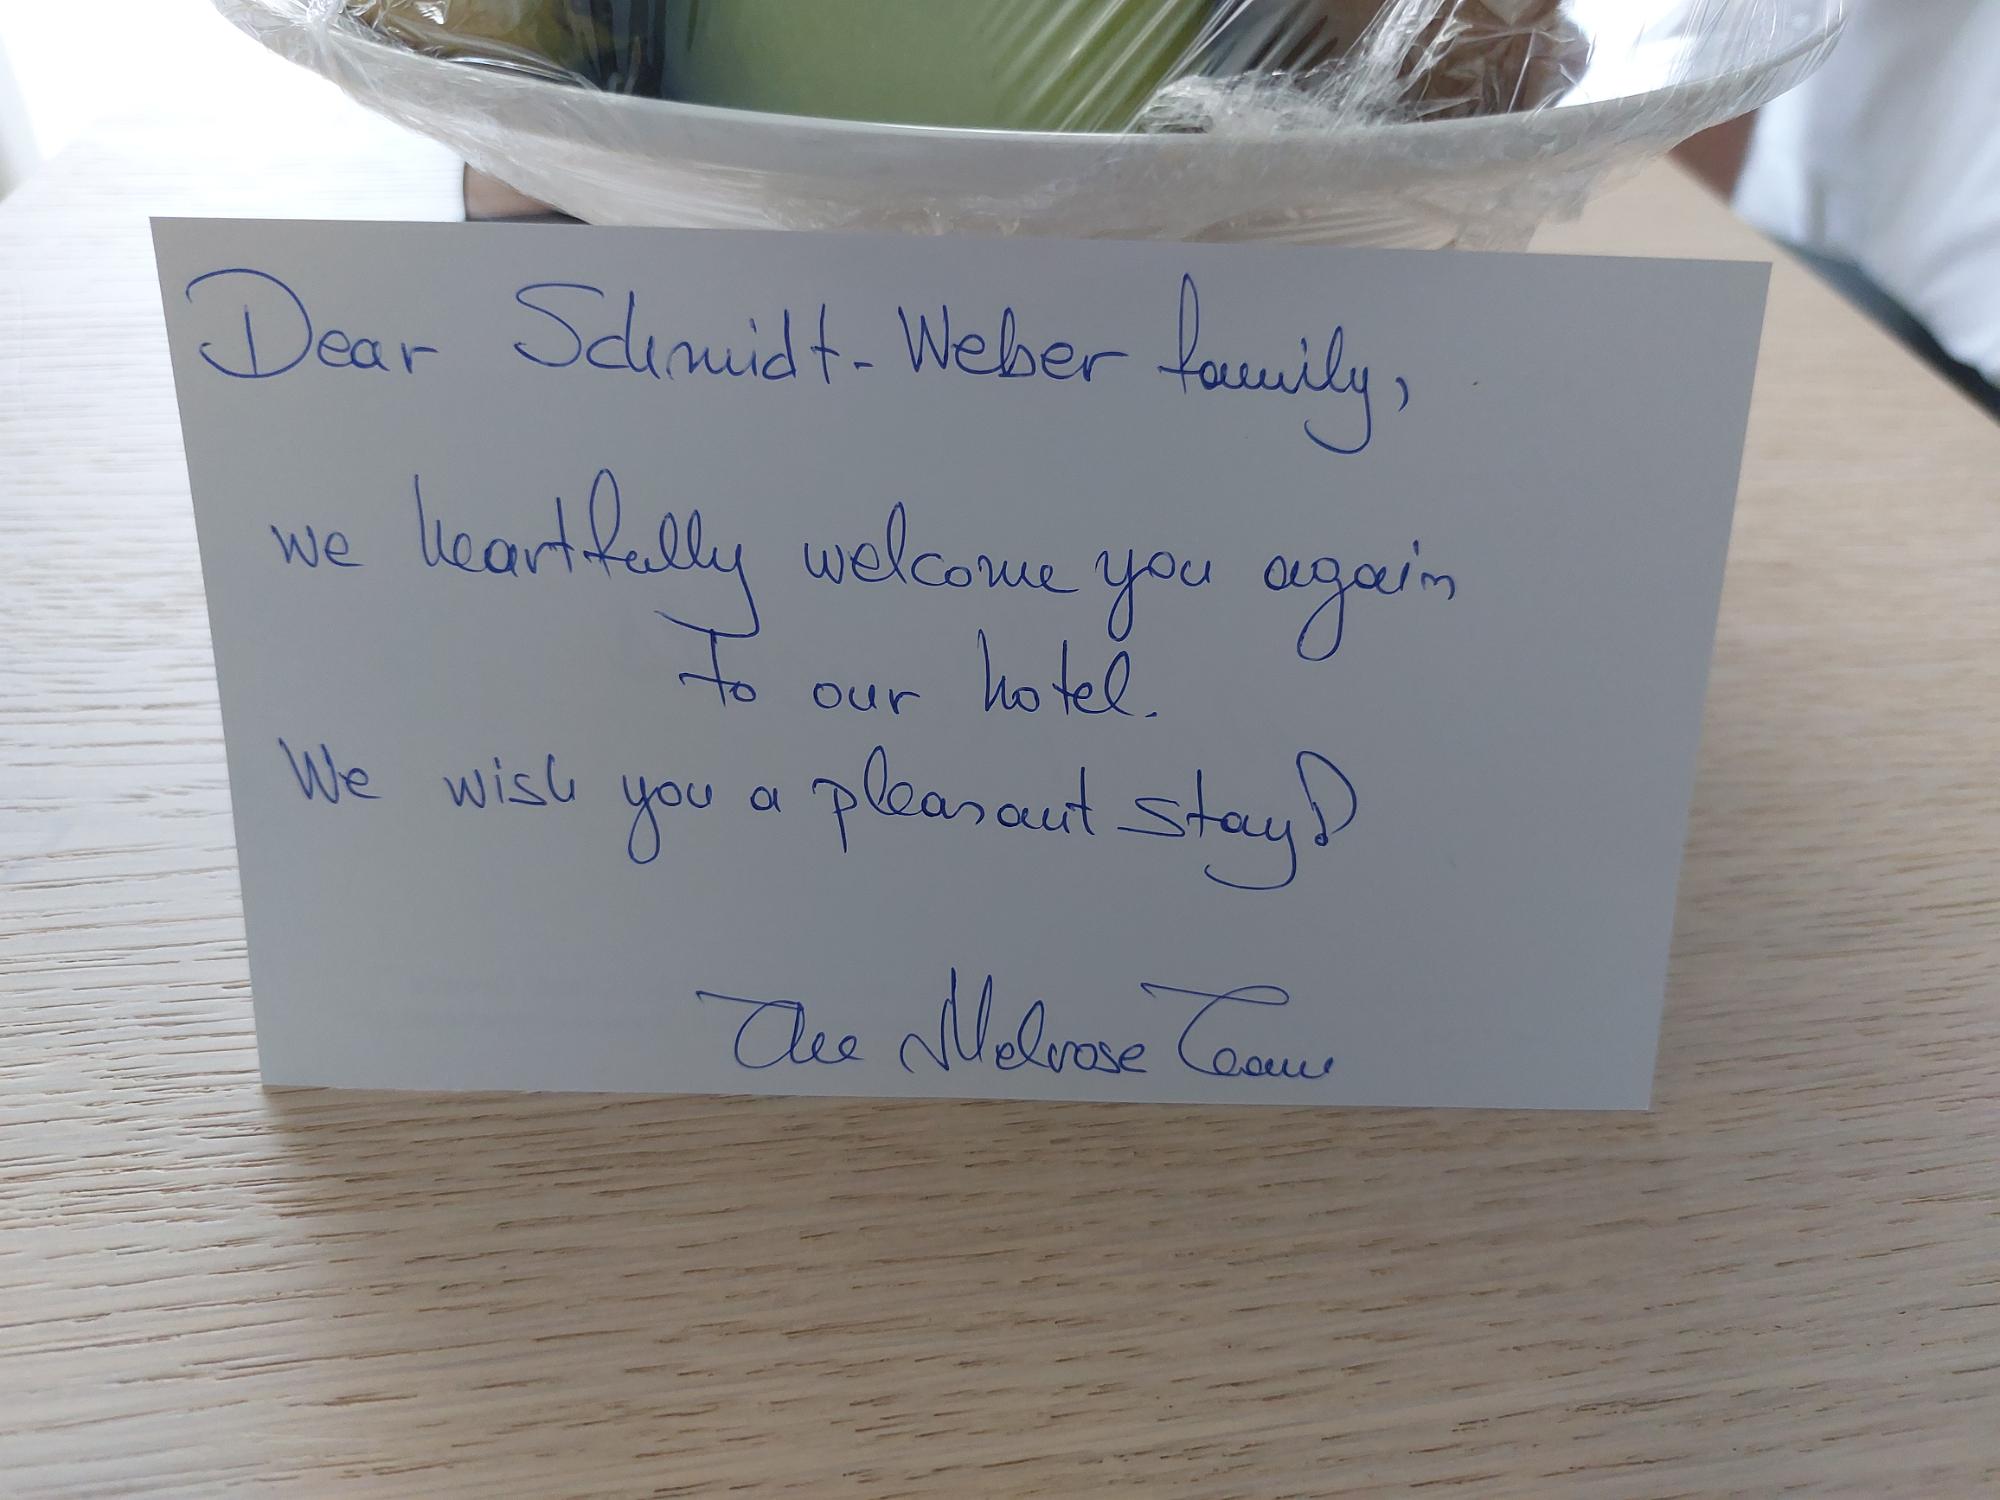 Dear Schmidt-Weber family,
we heartfully welcome you again
to our hotel.
We wish you a pleasant stay!
The Melrose Team